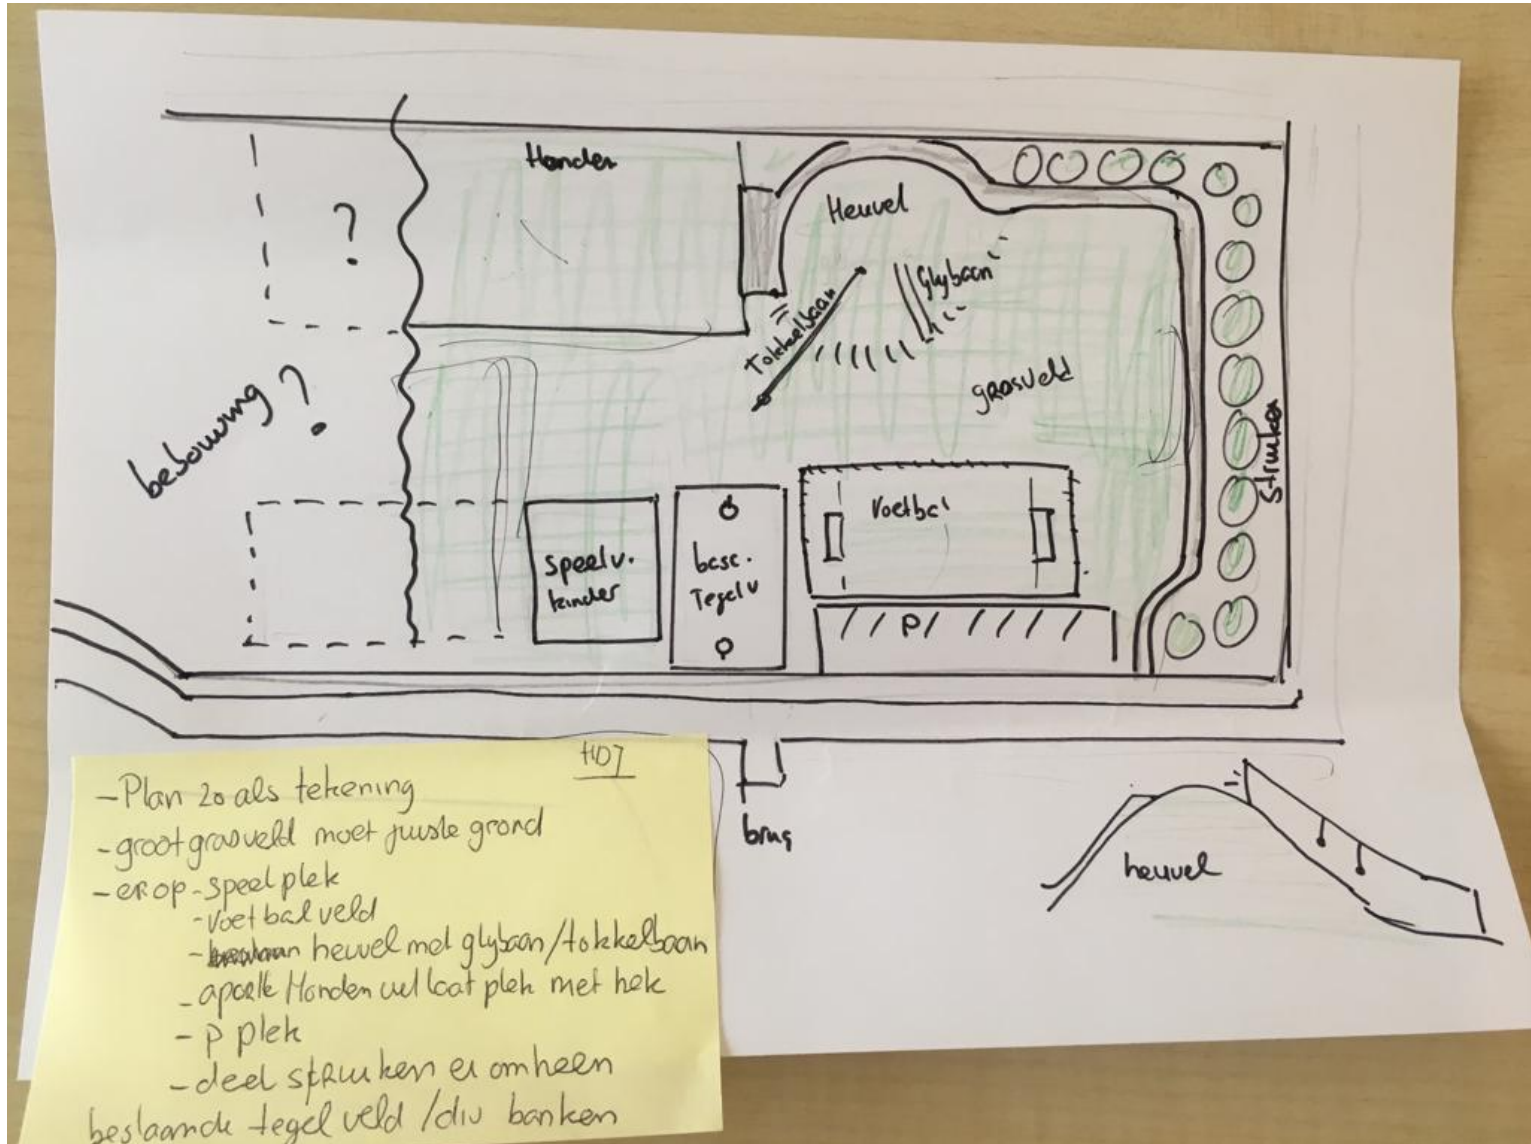 Honden
?
Heuvel
Glybaan
Tokkelbaan
grasveld
bebouwing ?
Struiken
Voetbal
speelv.
kinder
besc.
Tegelv
P
brug
heuvel
- Plan zoals tekening
- groot grasveld moet juiste grond
- erop - speelplek
- voetbalveld
- heuvel met glybaan/tokkelbaan
- aparte Honden uitlaat plek met hek
- P plek
- deel struiken er omheen
bestaande tegel veld / div banken